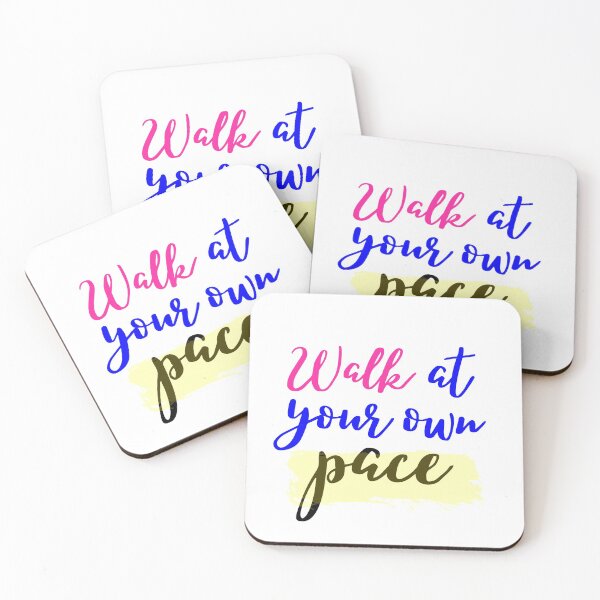 Walk at
your own
pace
Walk at
your own
pace
Walk at
your own
pace
Walk at
your own
pace